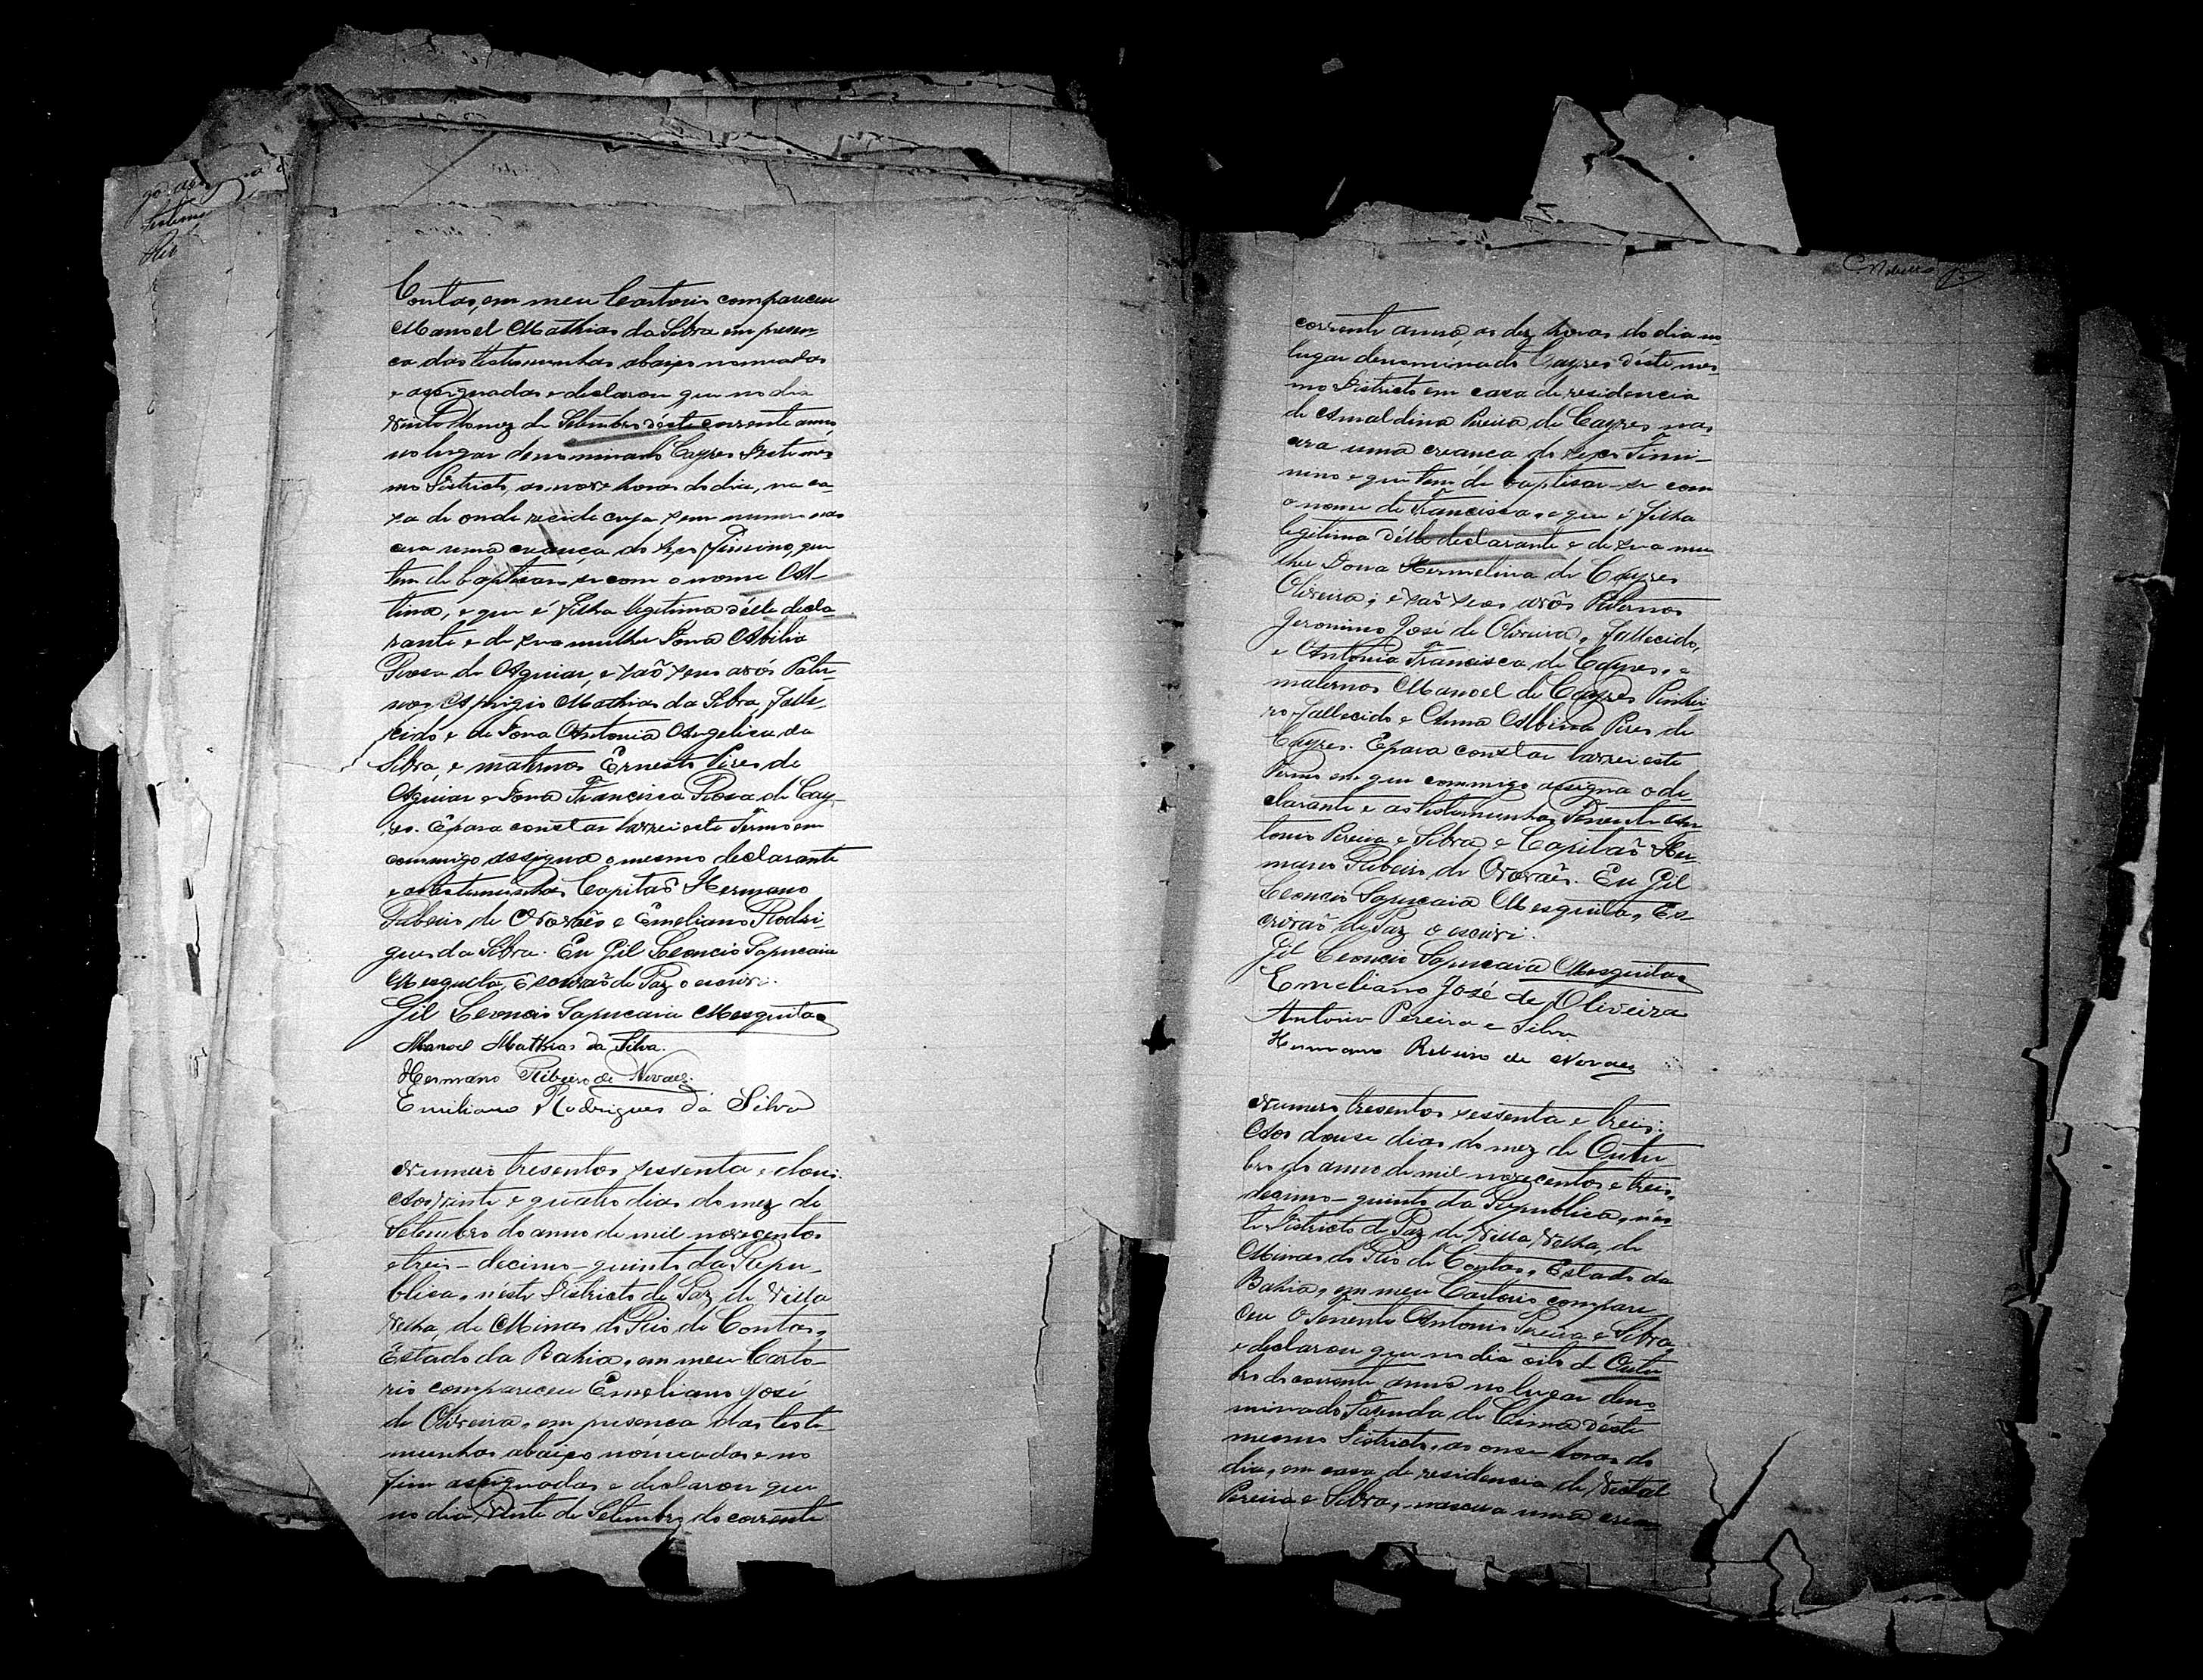 go assigna
testemu
Rib
Contas, em meu Cartorio compareceu
Manoel Mathias da Silva em presen-
ça das testemunhas abaixo nomeadas
e assignadas e declarou que no dia
vinte do mez de Setembro d'éste corrente anno
no lugar denominado Cayres d'este mes-
mo Districto, as nove horas do dia, na ca-
za de onde recide cuja sem numero nas-
cera uma creança do sexo Fiminino, que
tem de baptisar-se com o nome Al-
tina, e que é filha legitima d'élle decla-
rante e de sua mulher Dona Abilia
Rosa de Aguiar, e saõ seus avós Pater-
nos Mathias da Silva, falle-
cido e de Dona Antonia Angelica da
Silva, e maternos Ernesto Pires de
Aguiar e Dona Francisca Rosa de Cay-
res. E para constar lavrei este Termo em
commigo assigna o mesmo declarante
e as testemunhas Capitaõ Hermano
Ribeiro de Novaês e Emeliano Rodri-
gues da Silva. Eu Gil Leoncio Sapucaia
Mesquita, Escrivaõ de Paz o escrivi.
Gil Leoncio Sapucaia Mesquita
Manoel Mathias da Silva.
Hermano Ribeiro de Novaes.
Emiliano Rodrigues da Silva
Numero tresentos sessenta e dous.
Aos vinte e quatro dias do mez de
Setembro do anno de mil novecentos
e treis - decimo - quinto da Repu-
blica, n'este Districto de Paz de Villa
Velha, de Minas do Rio de Contas,
Estado da Bahia, em meu Carto-
rio compareceu Emeliano José
de Oliveira, em presença das teste-
munhas abaixo nomeadas e no
fim assignadas e declarou que
no dia Vinte de Setembro do corrente
corrente anno, as dez horas do dia no
lugar denominado Cayres d'éste mes-
mo Districto em casa de residencia
de Amaldina Pereira de Cayres nas-
cera uma creança do sexo Fimi-
nino e que tem de baptisar-se com
o nome de Francisca, e que é filha
legitima d'élle declarante e de sua mu-
lher Dona Hermelina de Cayres
Oliveira; e saõ seos avôs Paternos
Jeronimo José de Oliveira, fallecido,
e Antonia Francisca de Cayres, e
maternos Manoel de Cayres Pinhei-
ro fallecido e Anna Albina Pires de
Cayres. E para constar lavrei este
Termo em que commigo assigna o de-
clarante e as testemunhas Tenente An-
tonio Pereira e Silva e Capitaõ Her-
mano Ribeiro de Novaês. Eu Gil
Leoncio Sapucaia Mesquita, Es-
crivaõ de Paz o escrivi.
Gil Leoncio Sapucaia Mesquita
Emeliano José de Oliveira
Antonio Pereira e Silva
Hermano Ribeiro de Novaes
Numero tresentos sessenta e treis.
Aos douse dias do mez de Outu-
bro do anno de mil novecentos e treis,
decimo - quinto da Republica, nés-
te Districto de Paz de Villa Velha, de
Minas do Rio de Contas, Estado da
Bahia, em meu Cartorio compare-
ceu o Tenente Antonio Pereira e Silva,
e declarou que no dia oito de Outu-
bro do corrente anno no lugar deno-
minado Fazenda de Cima d'éste
mesmo Districto, as onse horas do
dia, em casa de residencia de Vital
Pereira e Silva, nasceu uma crean-